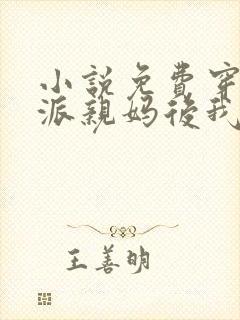 小說免費穿
派親媽後我
王善明